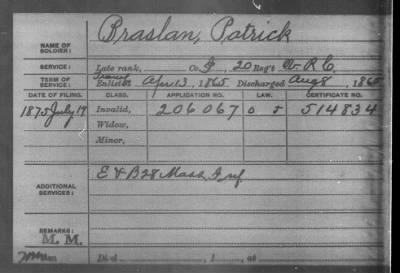 NAME OF SOLDIER: Braslan, Patrick
SERVICE: Late rank, Co. G, 20 Reg't V. R. C.
TERM OF SERVICE: Transf Enlisted Apr. 13, 1865. Discharged Aug 8, 1865
DATE OF FILING. CLASS. APPLICATION NO. LAW. CERTIFICATE NO.
1875 July 19 Invalid, 206067 514834
Widow,
Minor,
ADDITIONAL SERVICES: E & B 28 Mass. Inf.
REMARKS:
M. M.
Died , 1 , at